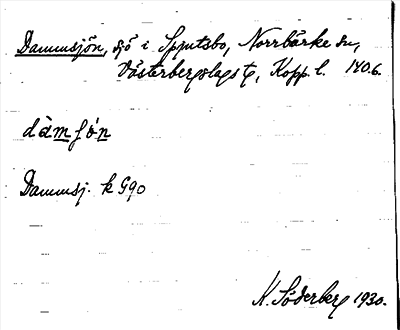 Dammsjön, sjö i Spjutsbo, Norrbärke sn,
Västerbergslags tg, Kopp. l. 140.6.
dàmʃö́n
Dammsj. k G90
K. Söderberg 1930.